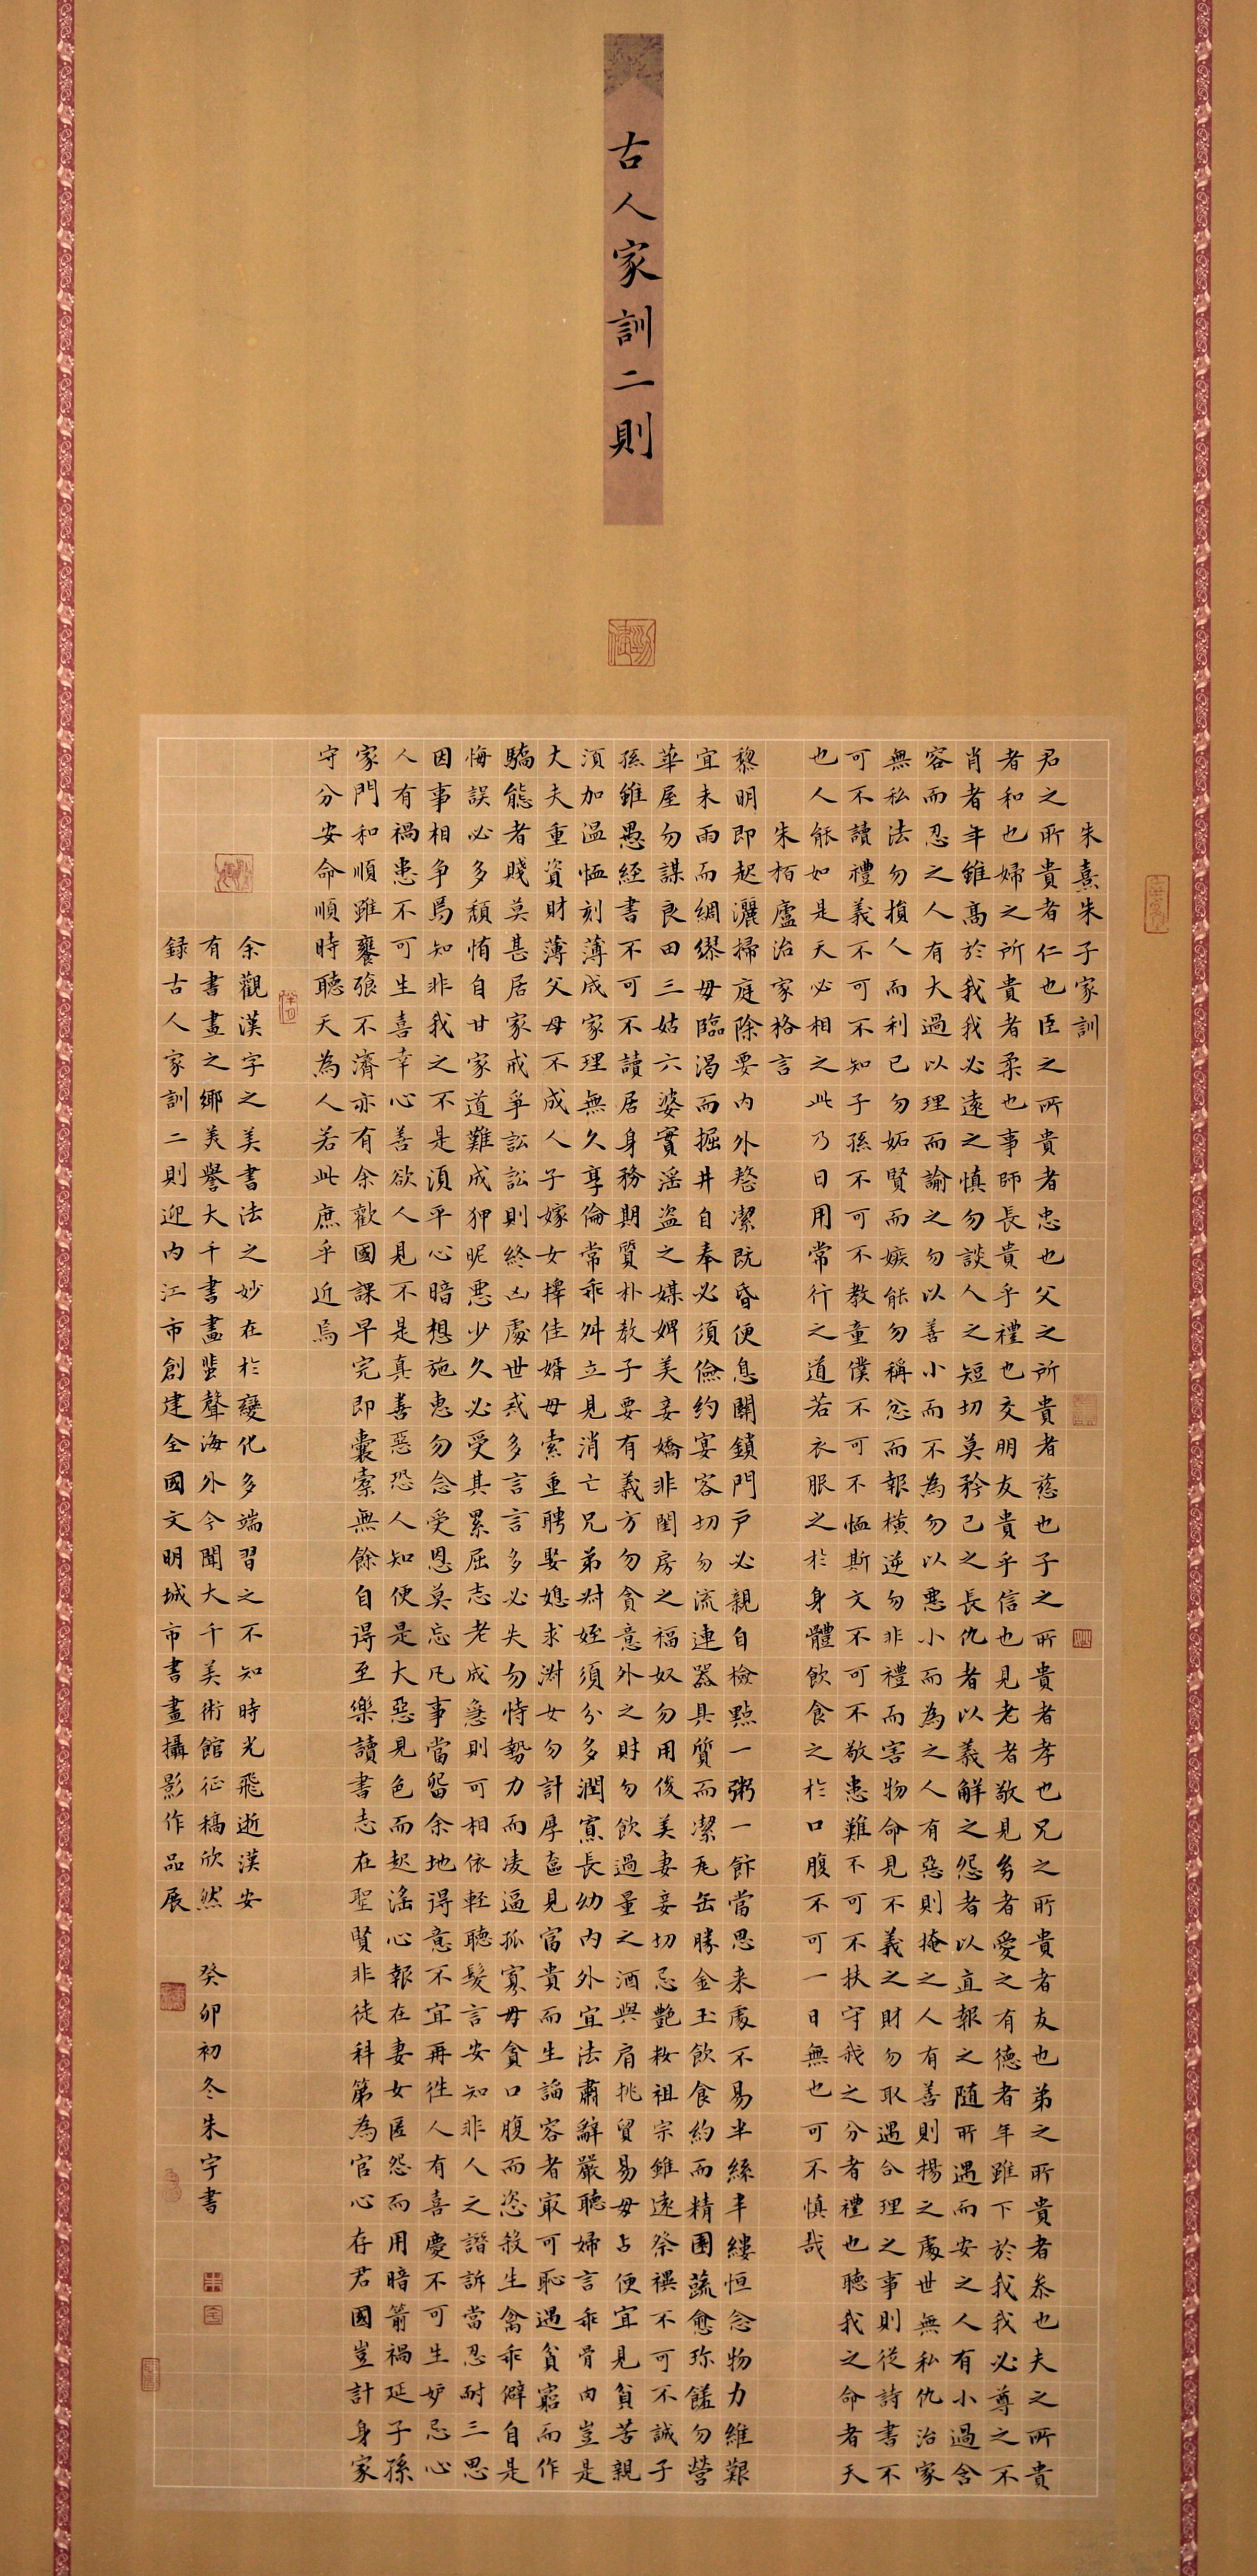 古人家訓二則
朱熹朱子家訓
君之所貴者仁也臣之所貴者忠也父之所貴者慈也子之所貴者孝也兄之所貴者友也弟之所貴者恭也夫之所貴
者和也婦之所貴者柔也事師長貴乎禮也交朋友貴乎信也見老者敬見幼者愛之有德者年雖下於我我必尊之不
肖者年雖高於我我必遠之慎勿談人之短切莫矜己之長仇者以義解之怨者以直報之随所遇而安之人有小過含
容而忍之人有大過以理而諭之勿以善小而不為勿以惡小而為之人有惡則掩之人有善則揚之處世無私仇治家
無私法勿損人而利己勿妬賢而嫉能勿稱忿而報橫逆勿非禮而害物命見不義之財勿取遇合理之事則從詩書不
可不讀禮義不可不知子孫不可不教童僕不可不恤斯文不可不敬患難不可不扶守我之分者禮也聽我之命者天
也人能如是天必相之此乃日用常行之道若衣服之於身體飲食之於口腹不可一日無也可不慎哉
朱柏廬治家格言
黎明即起灑掃庭除要内外整潔既昏便息關鎖門户必親自檢點一粥一飯當思来處不易半絲半縷恒念物力維艱
宜未雨而綢繆毋臨渴而掘井自奉必須儉約宴客切勿流連器具質而潔瓦缶勝金玉飲食約而精園蔬愈珍饈勿營
華屋勿謀良田三姑六婆實淫盗之媒婢美妾嬌非閨房之福奴勿用俊美妻妾切忌艷妝祖宗雖遠祭祀不可不誠子
孫雖愚經書不可不讀居身務期質朴教子要有義方勿貪意外之財勿飲過量之酒與肩挑貿易毋占便宜見貧苦親
須加温恤刻薄成家理無久享倫常乖舛立見消亡兄弟叔姪須分多潤寡長幼内外宜法肅辭嚴聽婦言乖骨肉豈是
大夫重資財薄父母不成人子嫁女擇佳婿毋索重聘娶媳求淑女勿計厚奩見富貴而生諂容者最可恥遇貧窮而作
驕態者賤莫甚居家戒爭訟訟則終凶處世戒多言言多必失勿恃勢力而凌逼孤寡毋貪口腹而恣殺生禽乖僻自是
悔誤必多頹惰自甘家道難成狎昵惡少久必受其累屈志老成急則可相依輕聽發言安知非人之譖訴當忍耐三思
因事相争焉知非我之不是須平心暗想施惠勿念受恩莫忘凡事當留余地得意不宜再往人有喜慶不可生妒忌心
人有禍患不可生喜幸心善欲人見不是真善惡恐人知便是大惡見色而起淫心報在妻女匿怨而用暗箭禍延子孫
家門和順雖饔飧不濟亦有余歡國課早完即囊橐無餘自得至樂讀書志在聖賢非徒科第為官心存君國豈計身家
守分安命順時聽天為人若此庶乎近焉
余觀漢字之美書法之妙在於變化多端習之不知時光飛逝漢安
有書畫之鄉美譽大千書畫蜚聲海外今聞大千美術館征稿欣然
録古人家訓二則迎内江市創建全國文明城市書畫攝影作品展
癸卯初冬朱宇書